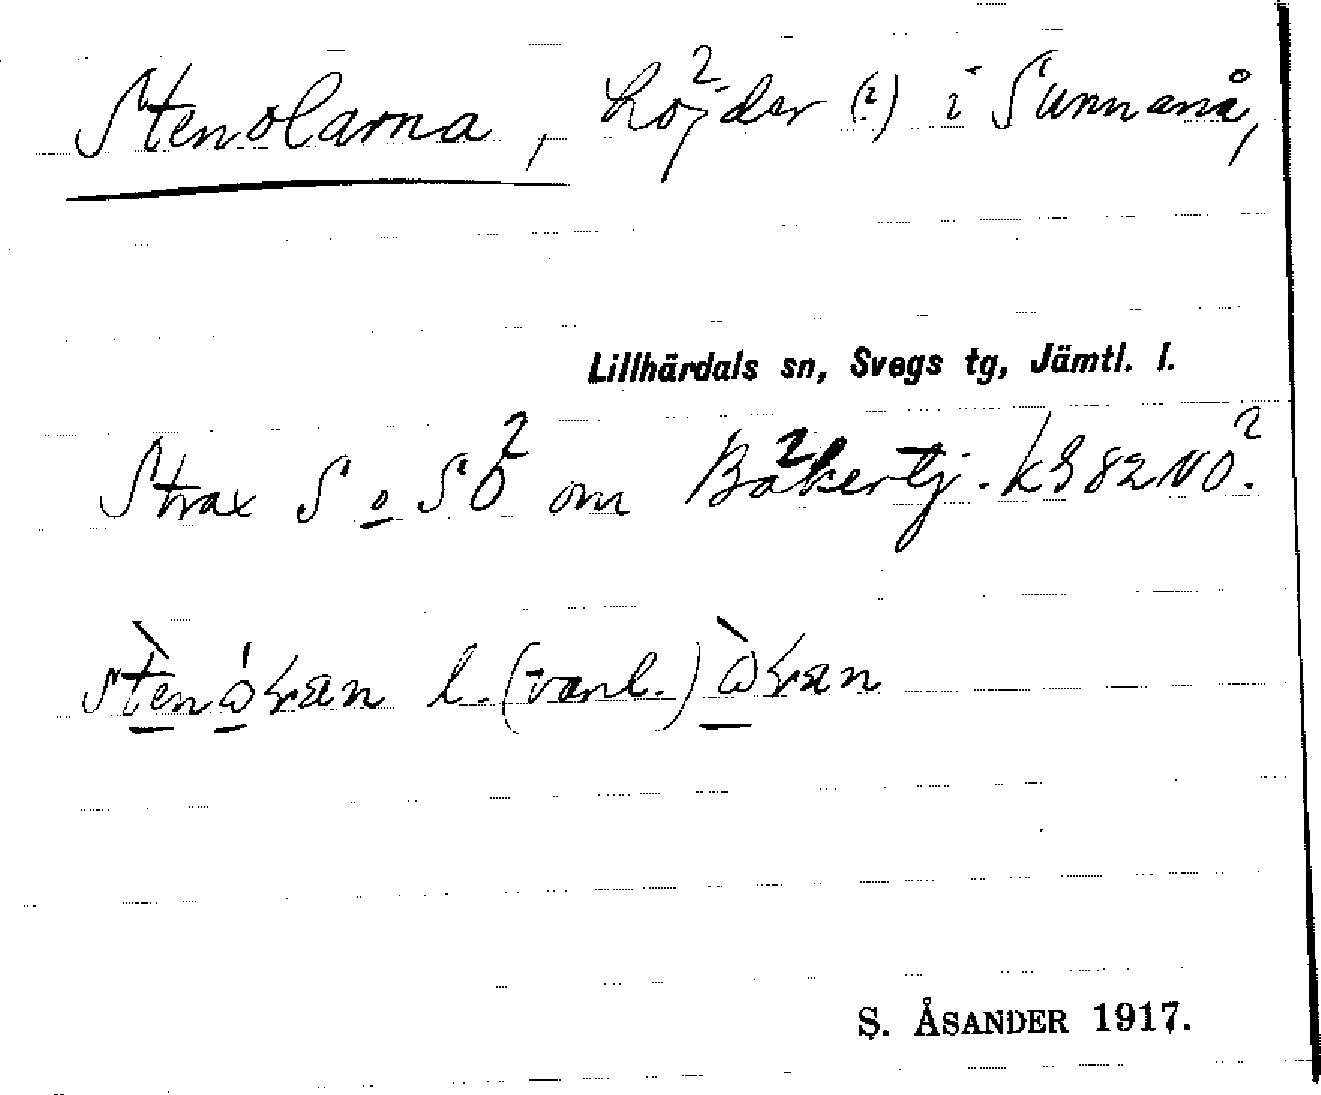 Stenolarna, Höjder (2) i Sunnanå,
Lillhärdals sn, Svegs tg, Jämtl. l.
Strax S o SÖ om Bäkertj. k9 82 NÖ.
l. (vanl.)
S. ÅSANDER 1917.